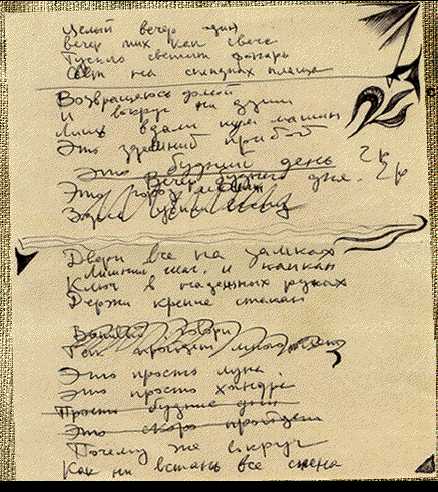 Целый вечер один
Вечер тих как свеча
Тускло светит фонарь
Свет на складках плаща
Возвращаюсь домой
И вокруг ни души
Лишь вдали шум машин
Это здешний прибой
Это будний день 2 р
Вечер буднего дня.
Это город
Здесь
Двери все на замках
Лишний шаг и капкан
Ключ в надежных руках
Держи крепче стакан
говори
Так пройдет много
Это просто луна
Это просто хандра
Просто будние дни
Это скоро пройдет
Почему же вокруг
Как ни встань все стена